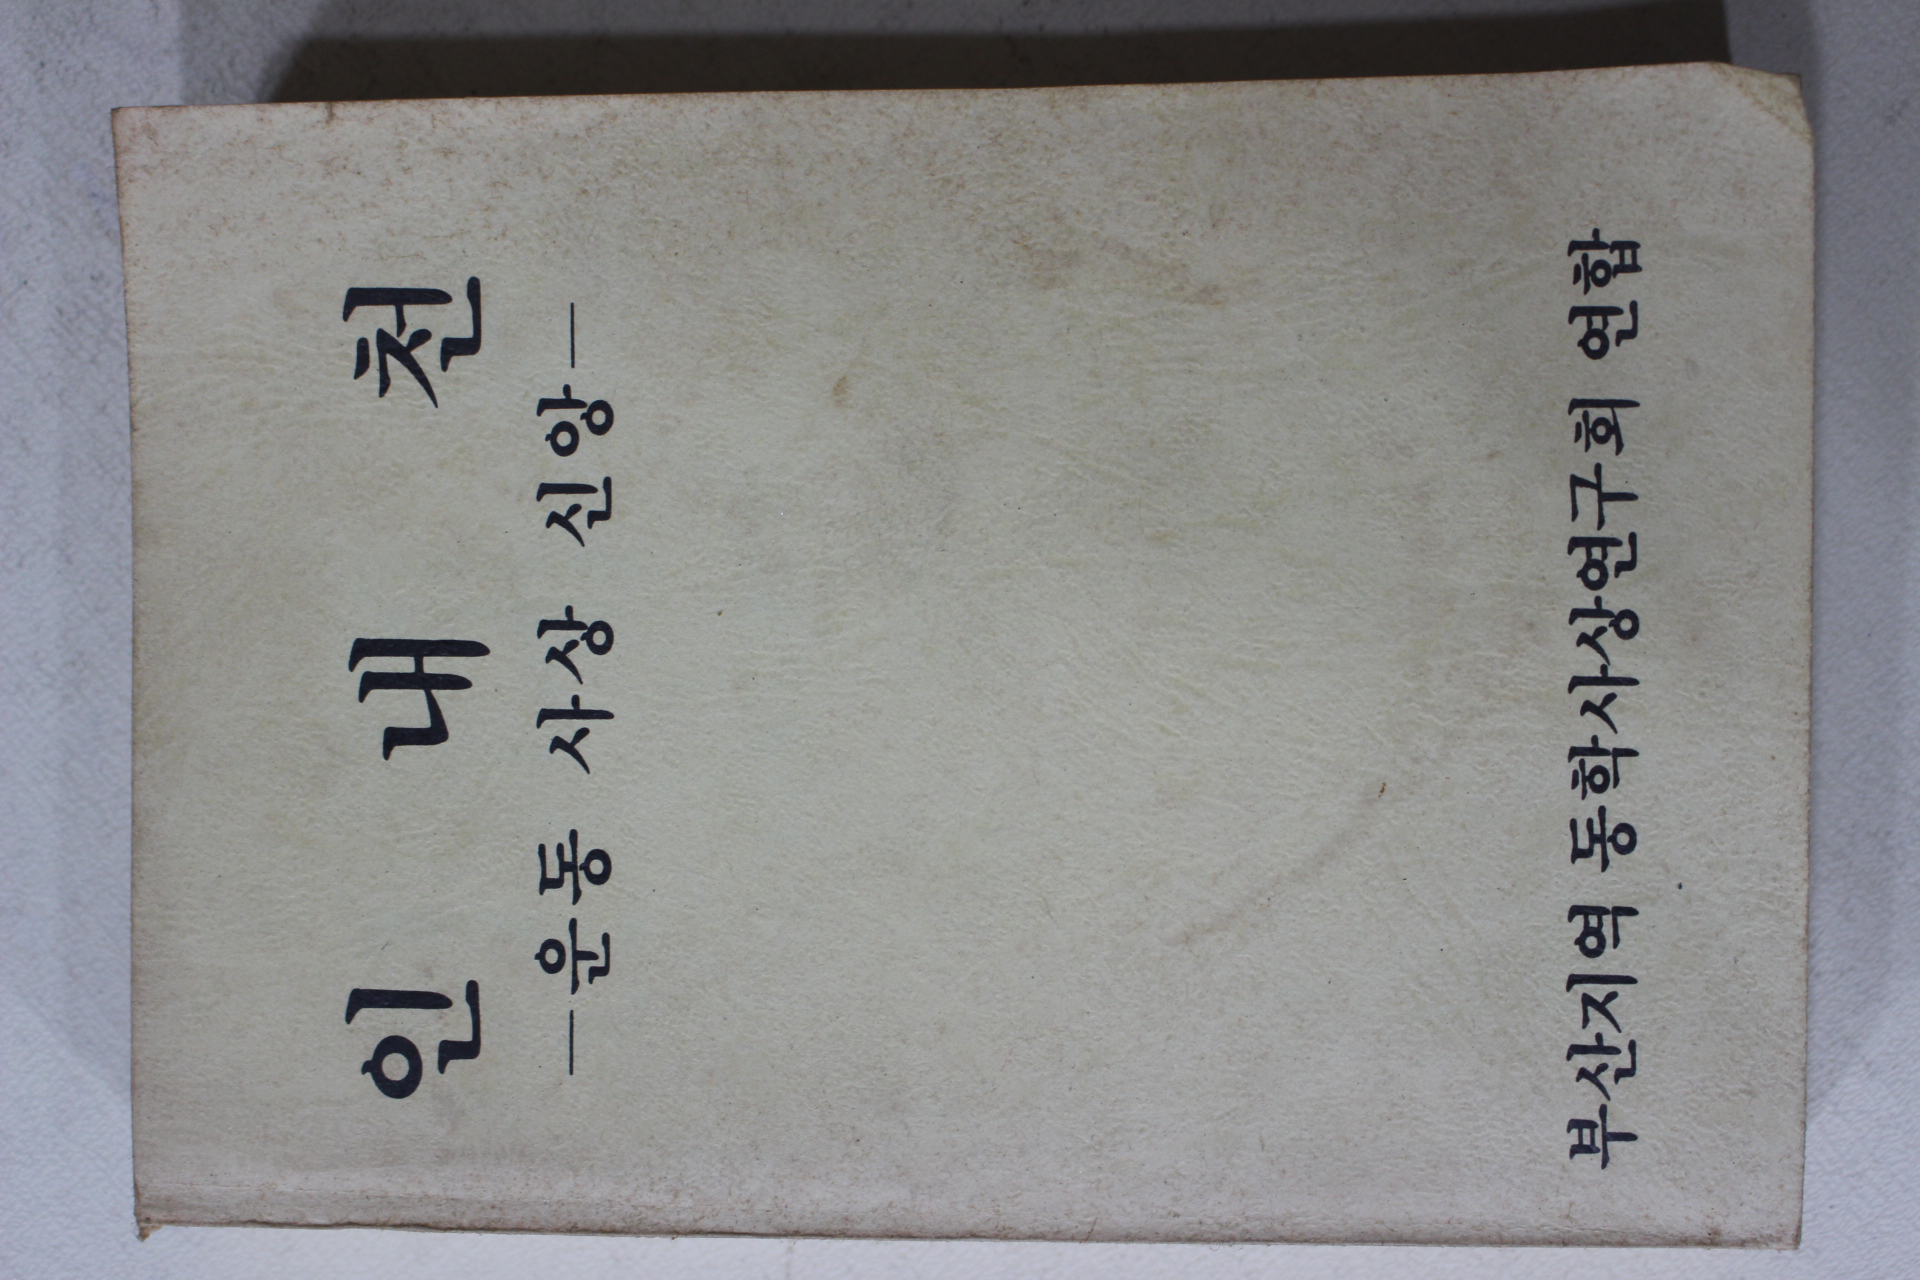 인 내 천
—운동 사상 신앙—
부산지역 동학사상연구회 연합